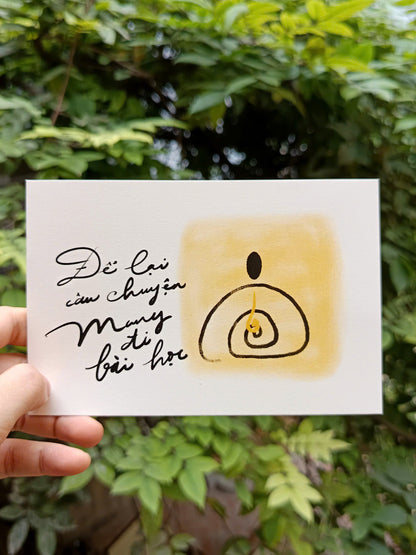 Để lại
câu chuyện
Mang
đi
bài học